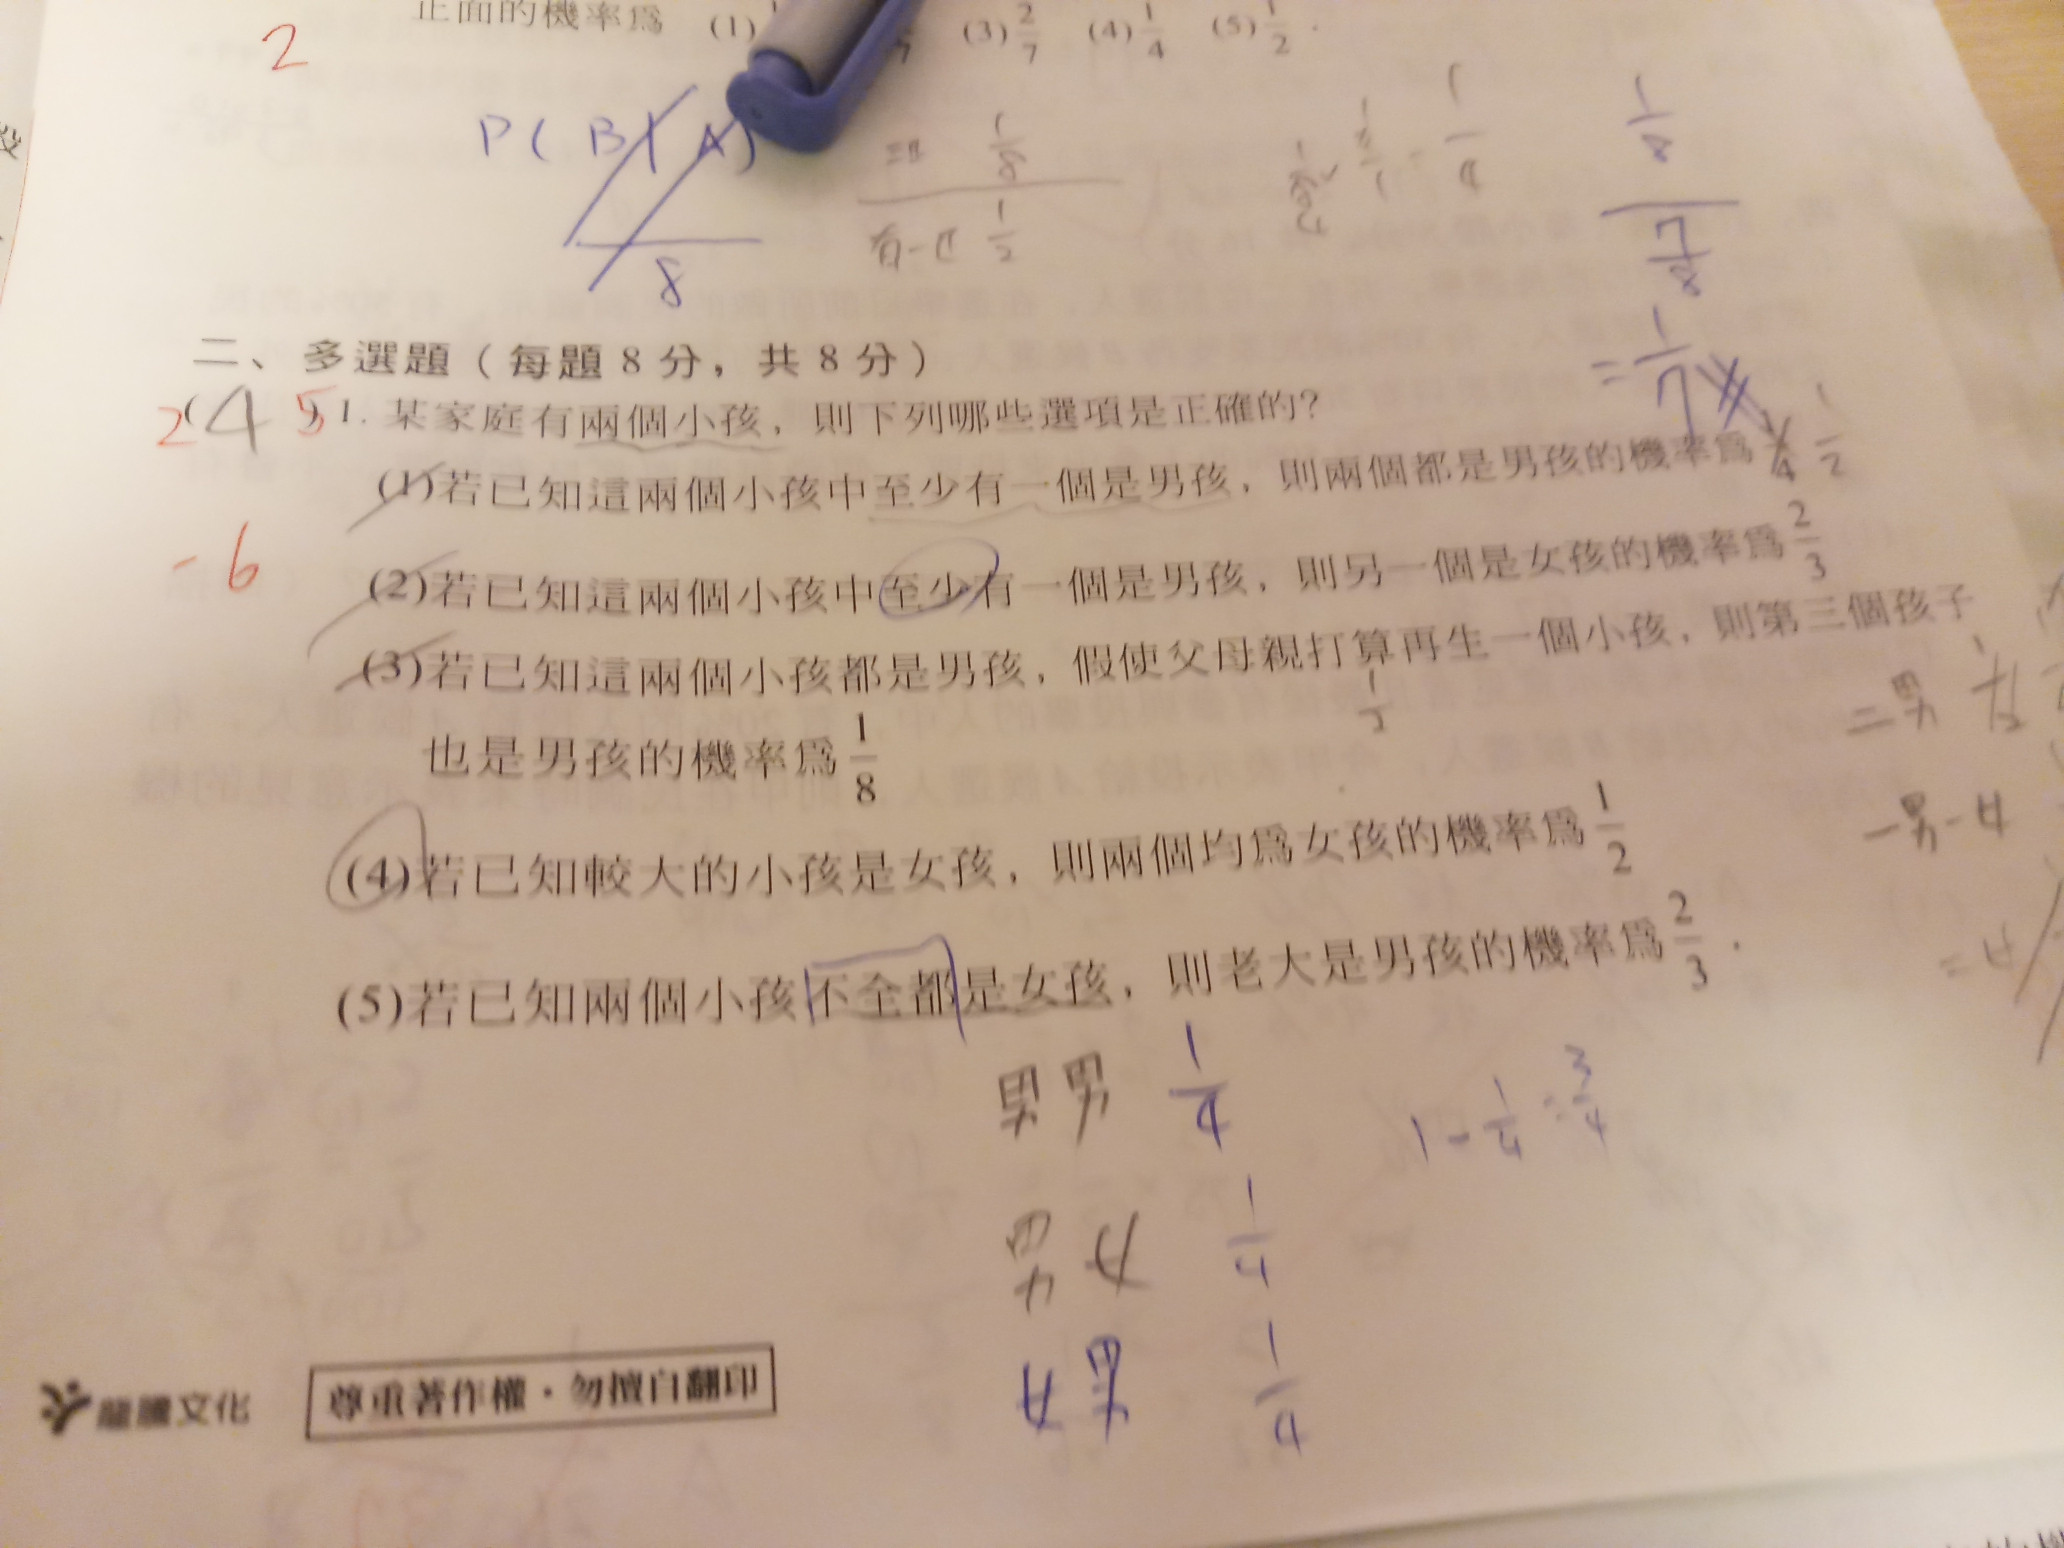 正面的機率為 (1) (3) 2/7 (4) 1/4 (5) 1/2.
2
P(B|A)
8
1/8
有一正 1/2
1/4
1/8
7/8
= 1/7
二、多選題（每題 8 分，共 8 分）
2(4 5) 1. 某家庭有兩個小孩，則下列哪些選項是正確的？
(1)若已知這兩個小孩中至少有一個是男孩，則兩個都是男孩的機率為 1/4 1/2
-6
(2)若已知這兩個小孩中至少有一個是男孩，則另一個是女孩的機率為 2/3
(3)若已知這兩個小孩都是男孩，假使父母親打算再生一個小孩，則第三個孩子
1/2
二男
也是男孩的機率為 1/8
一男一女
(4)若已知較大的小孩是女孩，則兩個均為女孩的機率為 1/2
二女
(5)若已知兩個小孩不全都是女孩，則老大是男孩的機率為 2/3.
男男 1/4
1 - 1/4 = 3/4
男女 1/4
女男 1/4
龍騰文化
尊重著作權・勿擅自翻印